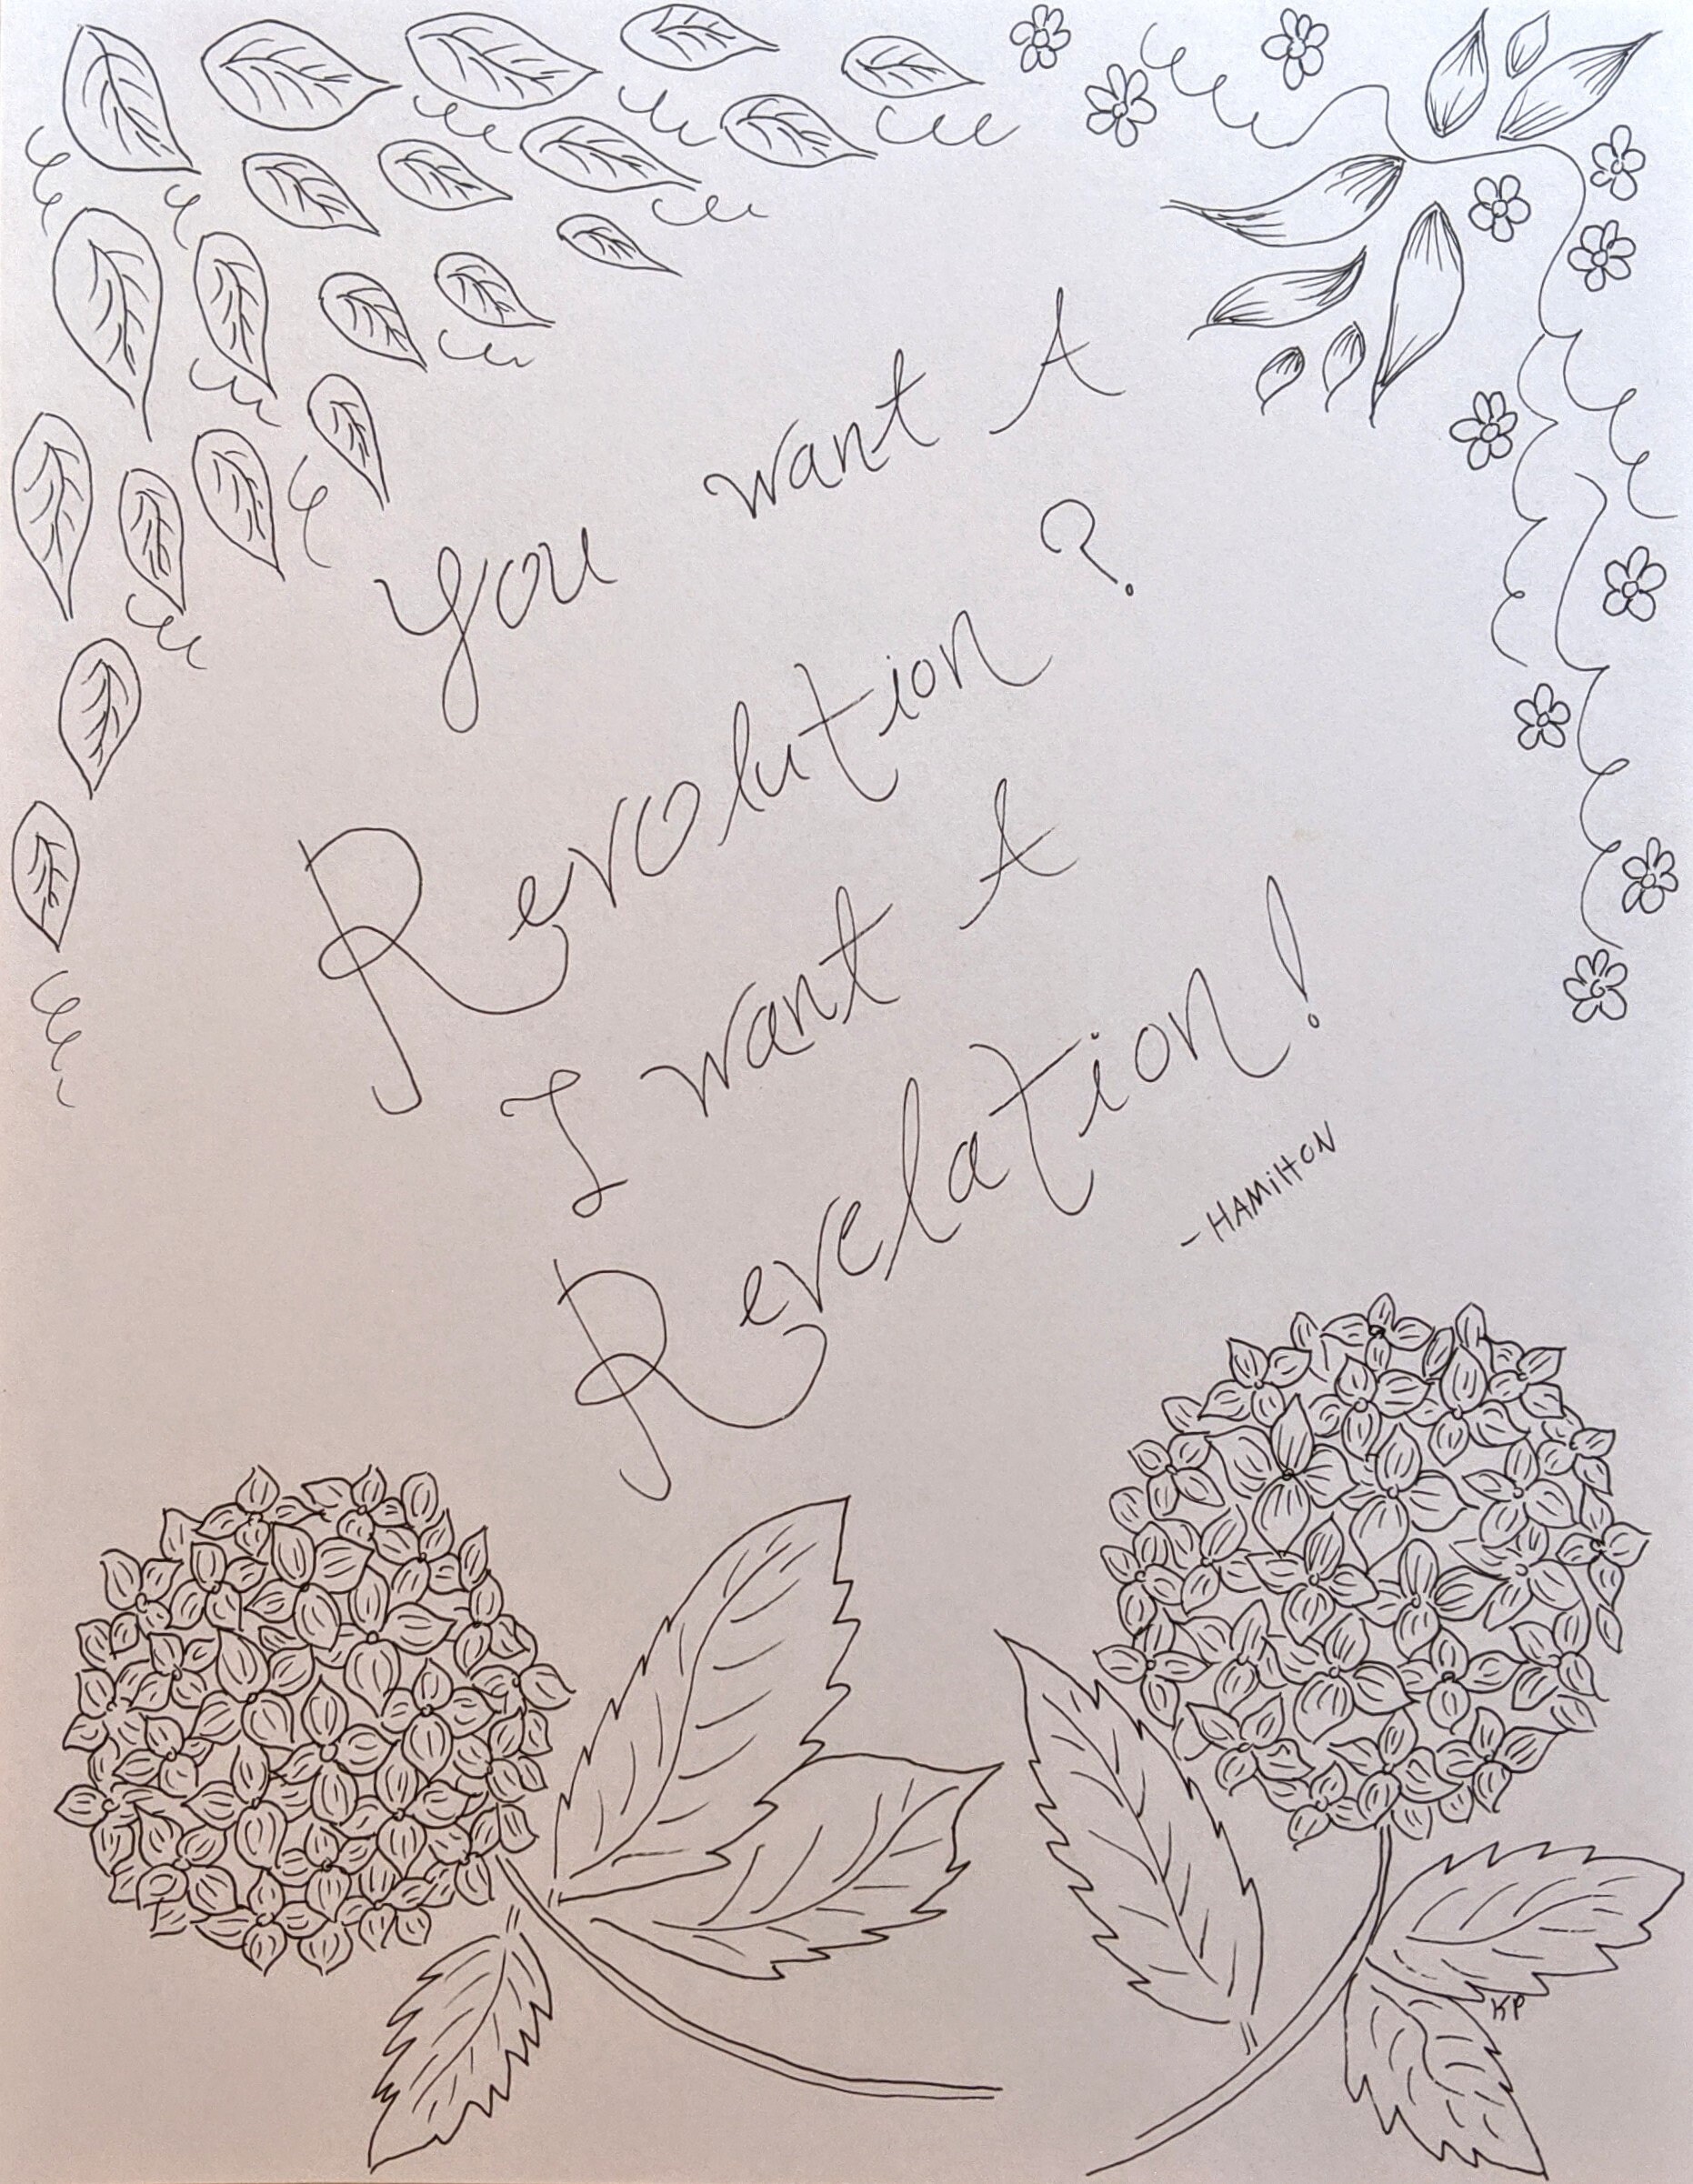 You want A
Revolution?
I want A
Revelation!
-HAMiltON
KP